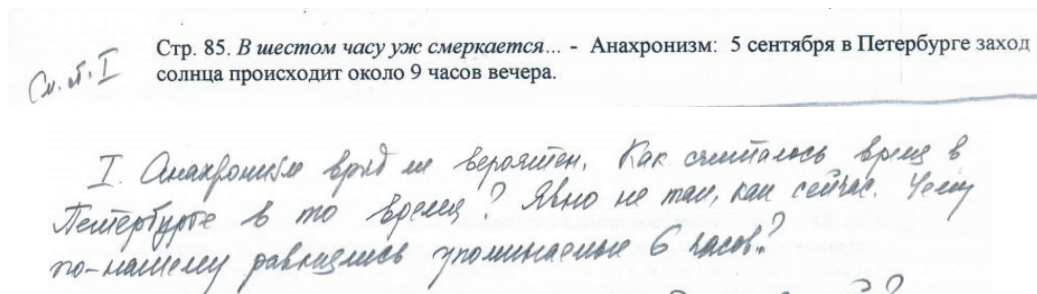 Стр. 85. В шестом часу уж смеркается... - Анахронизм: 5 сентября в Петербурге заход
солнца происходит около 9 часов вечера.
См. I
I. Анахронизм вряд ли вероятен. Как считалось время в
Петербурге в то время? Явно не так, как сейчас. Чему
по-нашему равнялись упоминаемые 6 часов?